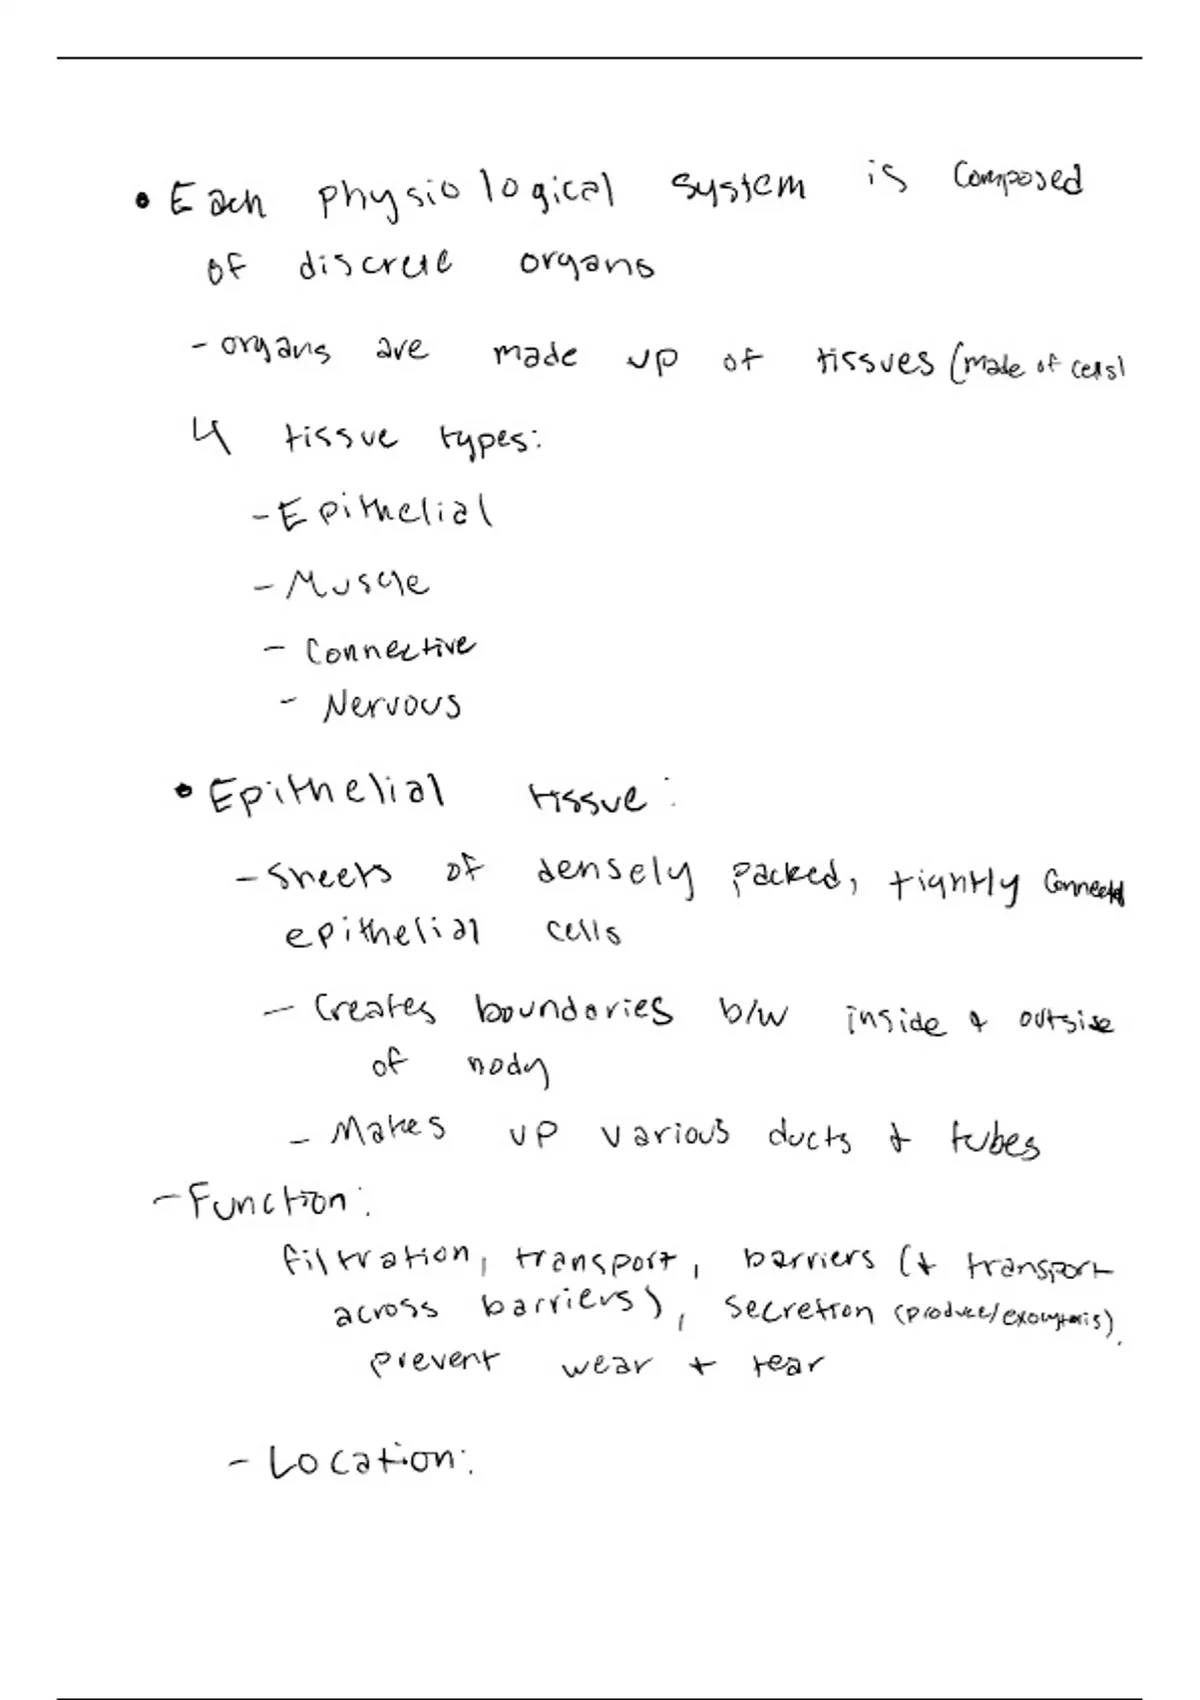 • Each physiological system is composed
of discrete organs
- organs are made up of tissues (made of cells)
4 tissue types:
- Epithelial
- Muscle
- Connective
- Nervous
• Epithelial tissue:
- Sheets of densely packed, tightly connected
epithelial cells
- Creates boundaries b/w inside & outside
of body
- Makes up various ducts & tubes
- Function:
filtration, transport, barriers (& transport
across barriers), secretion (produce/exocytosis),
prevent wear + tear
- Location: